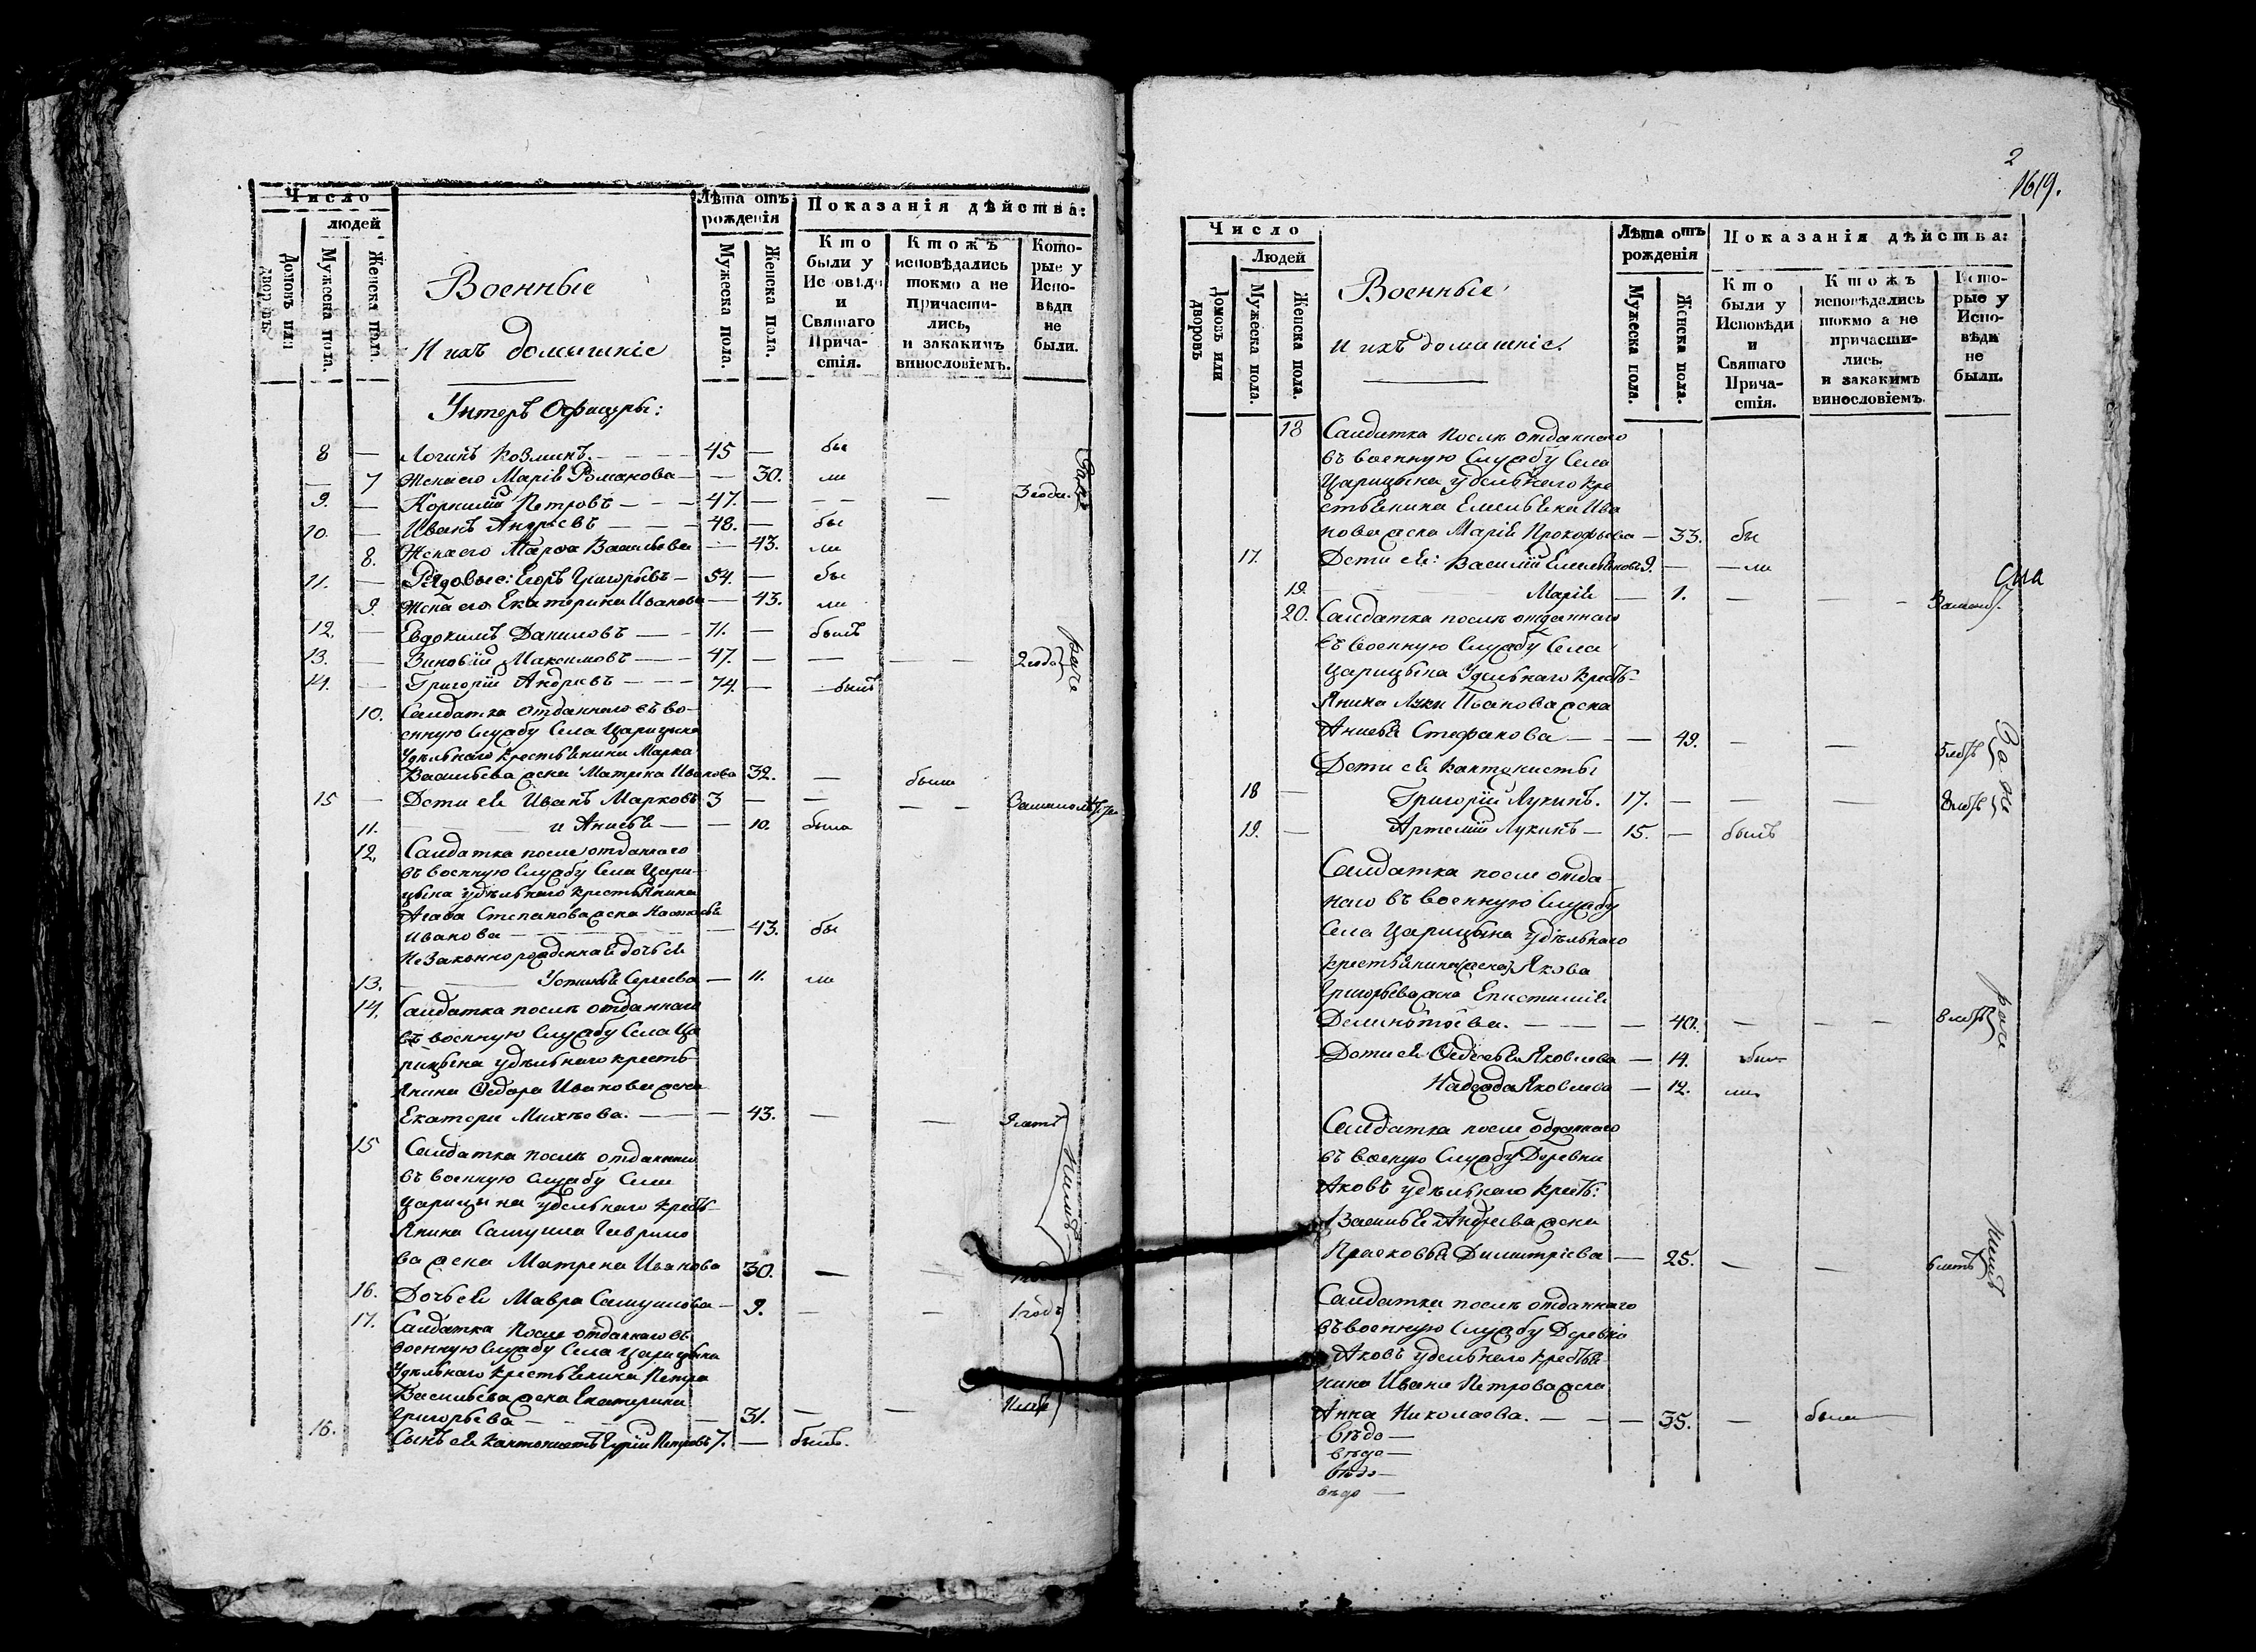 Число
людей
Домовъ или дворовъ.
Мужеска пола.
Женска пола.
Военные
И ихъ домашніе
Лѣта отъ рожденія
Мужеска пола.
Женска пола.
Показанія дѣйства:
Кто были у Исповѣди и Святаго Причастія.
Ктожъ исповѣдались токмо а не причастились, и закакимъ винословіемъ.
Которые у Исповѣди не были.
Унтеръ Офицеры:
8 — Логинъ Козминъ. — 45 — бы
— 7 Жена его Марія Романова — — 30. ли
9. — Корнилій Петровъ — — — 47. — — — — 3 года.
10. — Иванъ Андреевъ — — — 48. — бы
8. Жена его Марѳа Васильева — 43. ли
11. — Рядовые: Егоръ Григорьевъ — 54. — бы
9. Жена его Екатерина Иванова — 43. ли
12. — Евдокимъ Даниловъ — — 71. — былъ
13. — Зиновій Максимовъ — — 47. — — — — 2 года
14. — Григорій Андреевъ — — — 74. — былъ
10. Салдатка отданнаго въ во-
енную Службу Села Царицына
Удѣльнаго Крестьянина Марка
Васильева жена Матрена Иванова 32. — была
15 — Дети ея Иванъ Марковъ 3 — — — —
11. и Анисья — — 10. была
12. Салдатка после отданнаго
въ военную Службу Села Цари-
цына удѣльнаго Крестьянина
Агава Степанова жена Настасья
Иванова — — 43. бы
Незаконнорожденная дочь ея
13. — Устинья Сергеева — 11. ли
14. Салдатка послѣ отданнаго
въ военную Службу Села Ца
рицына удѣльнаго кресть
янина Ѳедора Иванова жена
Екатери Михѣева. — — — 43. — —
15 Салдатка послѣ отданнаго
въ военную службу Села
Царицына удельнаго Кресть-
янина Самуила Гаврило
ва жена Матрена Иванова 30. — —
16. Дочь ея Мавра Самуилова — 9. — — 1 годъ
17. Салдатка После отданнаго въ
военную Службу Села Царицына
Удѣльнаго Крестьянина Петра
Васильева жена Екатерина
Григорьева — — — — 31. — —
16. Сынъ ея Кантонистъ Гурій Петровъ 7. — былъ.
2
1619.
Число
Людей
Домовъ или дворовъ
Мужеска пола.
Женска пола.
Военные
и ихъ домашніе.
Лѣта отъ рожденія
Мужеска пола.
Женска пола.
Показанія дѣйства:
Кто были у Исповѣди и Святаго Причастія.
Ктожъ исповѣдались токмо а не причастились. и закакимъ винословіемъ.
Которые у Исповѣди не были.
18 Салдатка послѣ отданнаго
въ военную Службу Села
Царицына удѣльнаго Кре
стьянина Емельяна Ива
нова жена Марія Прокофьева — 33. бы
17. Дети ея: Василій Емельяновъ 9. — — ли
19. Марія — 1. — — —
20. Салдатка послѣ отданнаго
въ военную Службу Села
Царицына Удельнаго Кресть-
янина Луки Иванова жена
Анисья Стефанова — — — 49. — —
Дети ея Кантонисты
18 — Григорій Лукинъ. 17. — — —
19. — Артемій Лукинъ — 15. — былъ
Салдатка после отда
наго въ военную Службу
Села Царицына удѣльнаго
крестьянина жена Якова
Григорьева жена Епистимія
Дементьева. — — — 40. — — —
Дети ея Ѳедосья Яковлева — 14. бы
Надежда Яковлева — 12. ли
Салдатка после отданнаго
въ военую Службу Деревни
Аковъ удѣльнаго Кресть:
Василья Андреева жена
Прасковья Димитріева — 25. — —
Салдатка послѣ отданнаго
въ военную Службу Деревни
Аковъ удельнаго Крестья
нина Ивана Петрова жена
Анна Николаева. — — — 35. — была